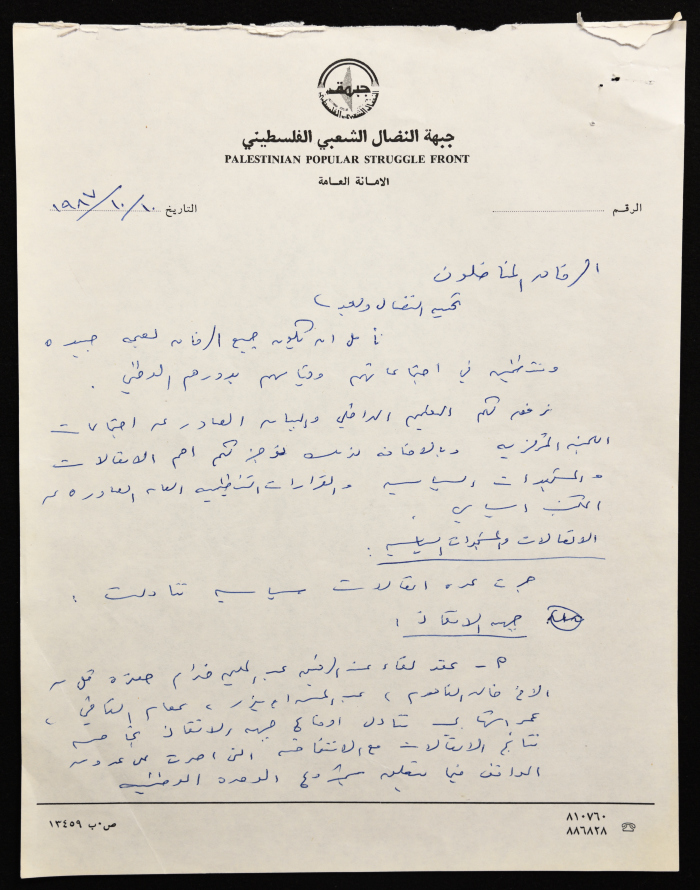 جبهة
جبهة النضال الشعبي الفلسطيني
PALESTINIAN POPULAR STRUGGLE FRONT
الامانة العامة
الرقم
التاريخ ١٩٨٧/١٠/١٠
الرفاق المناضلون
تحية النضال وبعد ،
نأمل ان تكون جميع الرفاق بصحة جيدة
ومنتظمين في اجتماعاتهم وقيامهم بدورهم الوطني .
نرفق لكم التعليم الداخلي والبيان الصادر عن اجتماعات
اللجنة المركزية وبالاضافة لذلك نوجز لكم اهم الاتصالات
والمستجدات السياسية والقرارات التنظيمية العامة الصادرة عن
المكتب السياسي
الاتصالات والمستجدات السياسية :
جرت عدة اتصالات سياسية تناولت :
جبهة الانقاذ :
عقد لقاء عند الرفيق عبد الحليم خدام حضره كل من
الاخ خالد الفاهوم ، عبد المحسن ابو ميزر ، عصام القاضي ،
تناول اوضاع جبهة الانقاذ
نتائج الاتصالات مع الانتفاضة التي
الوطني فيما يتعلق بمشروع الوحدة الوطنية
ص.ب ١٣٤٥٩
٨١٠٧٦٠
٨٨٦٨٢٨